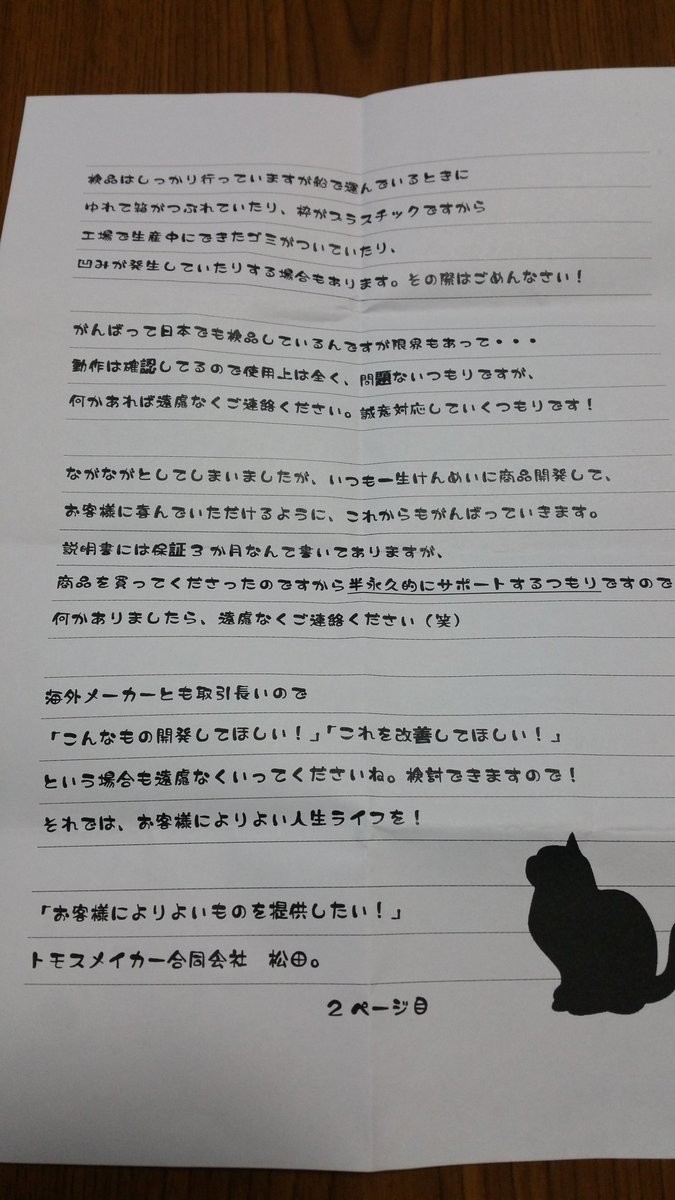 検品はしっかり行っていますが船で運んでいるときに
ゆれて箱がつぶれていたり、枠がプラスチックですから
工場で生産中にできたゴミがついていたり、
凹みが発生していたりする場合もあります。その際はごめんなさい！
がんばって日本でも検品しているんですが限界もあって・・・
動作は確認してるので使用上は全く、問題ないつもりですが、
何かあれば遠慮なくご連絡ください。誠意対応していくつもりです！
ながながとしてしまいましたが、いつも一生けんめいに商品開発して、
お客様に喜んでいただけるように、これからもがんばっていきます。
説明書には保証３か月なんて書いてありますが、
商品を買ってくださったのですから半永久的にサポートするつもりですので
何かありましたら、遠慮なくご連絡ください（笑）
海外メーカーとも取引長いので
「こんなもの開発してほしい！」「これを改善してほしい！」
という場合も遠慮なくいってくださいね。検討できますので！
それでは、お客様によりよい人生ライフを！
「お客様によりよいものを提供したい！」
トモスメイカー合同会社　松田。
２ページ目